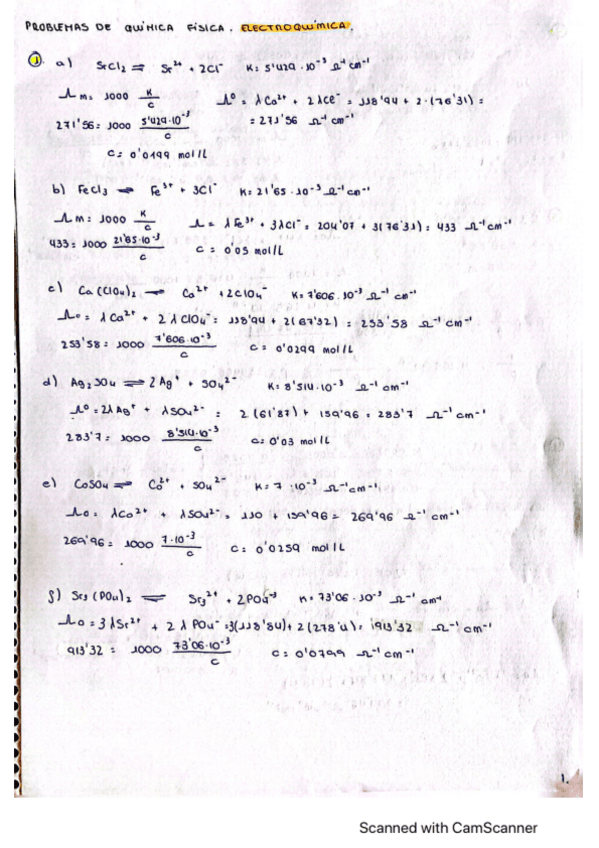 PROBLEMAS DE QUÍMICA FÍSICA. ELECTROQUÍMICA.
1. a) SrCl2 ⇌ Sr2+ + 2Cl- K= 5'429 · 10-3 Ω-1 cm-1
Λm= 1000 K/c Λ0 = λCa2+ + 2λCl- = 118'94 + 2·(76'31) =
271'56= 1000 5'429·10-3/c = 271'56 Ω-1 cm-1
c= 0'0199 mol/L
b) FeCl3 ⇌ Fe3+ + 3Cl- K= 21'65 · 10-3 Ω-1 cm-1
Λm= 1000 K/c Λ= λFe3+ + 3λCl- = 204'07 + 3(76'31)= 433 Ω-1 cm-1
433= 1000 21'65·10-3/c c= 0'05 mol/L
c) Ca(ClO4)2 ⇌ Ca2+ + 2ClO4- K= 7'606 · 10-3 Ω-1 cm-1
Λ0= λCa2+ + 2λClO4- = 118'94 + 2(67'32) = 253'58 Ω-1 cm-1
253'58= 1000 7'606·10-3/c c= 0'0299 mol/L
d) Ag2SO4 ⇌ 2Ag+ + SO42- K= 8'514·10-3 Ω-1 cm-1
Λ0=2λAg+ + λSO42- = 2(61'87) + 159'96 = 283'7 Ω-1 cm-1
283'7= 1000 8'514·10-3/c c= 0'03 mol/L
e) CoSO4 ⇌ Co2+ + SO42- K= 7·10-3 Ω-1 cm-1
Λ0= λCo2+ + λSO42- = 110 + 159'96= 269'96 Ω-1 cm-1
269'96= 1000 7·10-3/c c= 0'0259 mol/L
f) Sr3(PO4)2 ⇌ Sr32+ + 2PO4-3 K= 73'06·10-3 Ω-1 cm-1
Λ0=3λSr2+ + 2λPO4- =3(118'84)+2(278'4)= 913'32 Ω-1 cm-1
913'32= 1000 73'06·10-3/c c= 0'0799 Ω-1 cm-1
1.
Scanned with CamScanner